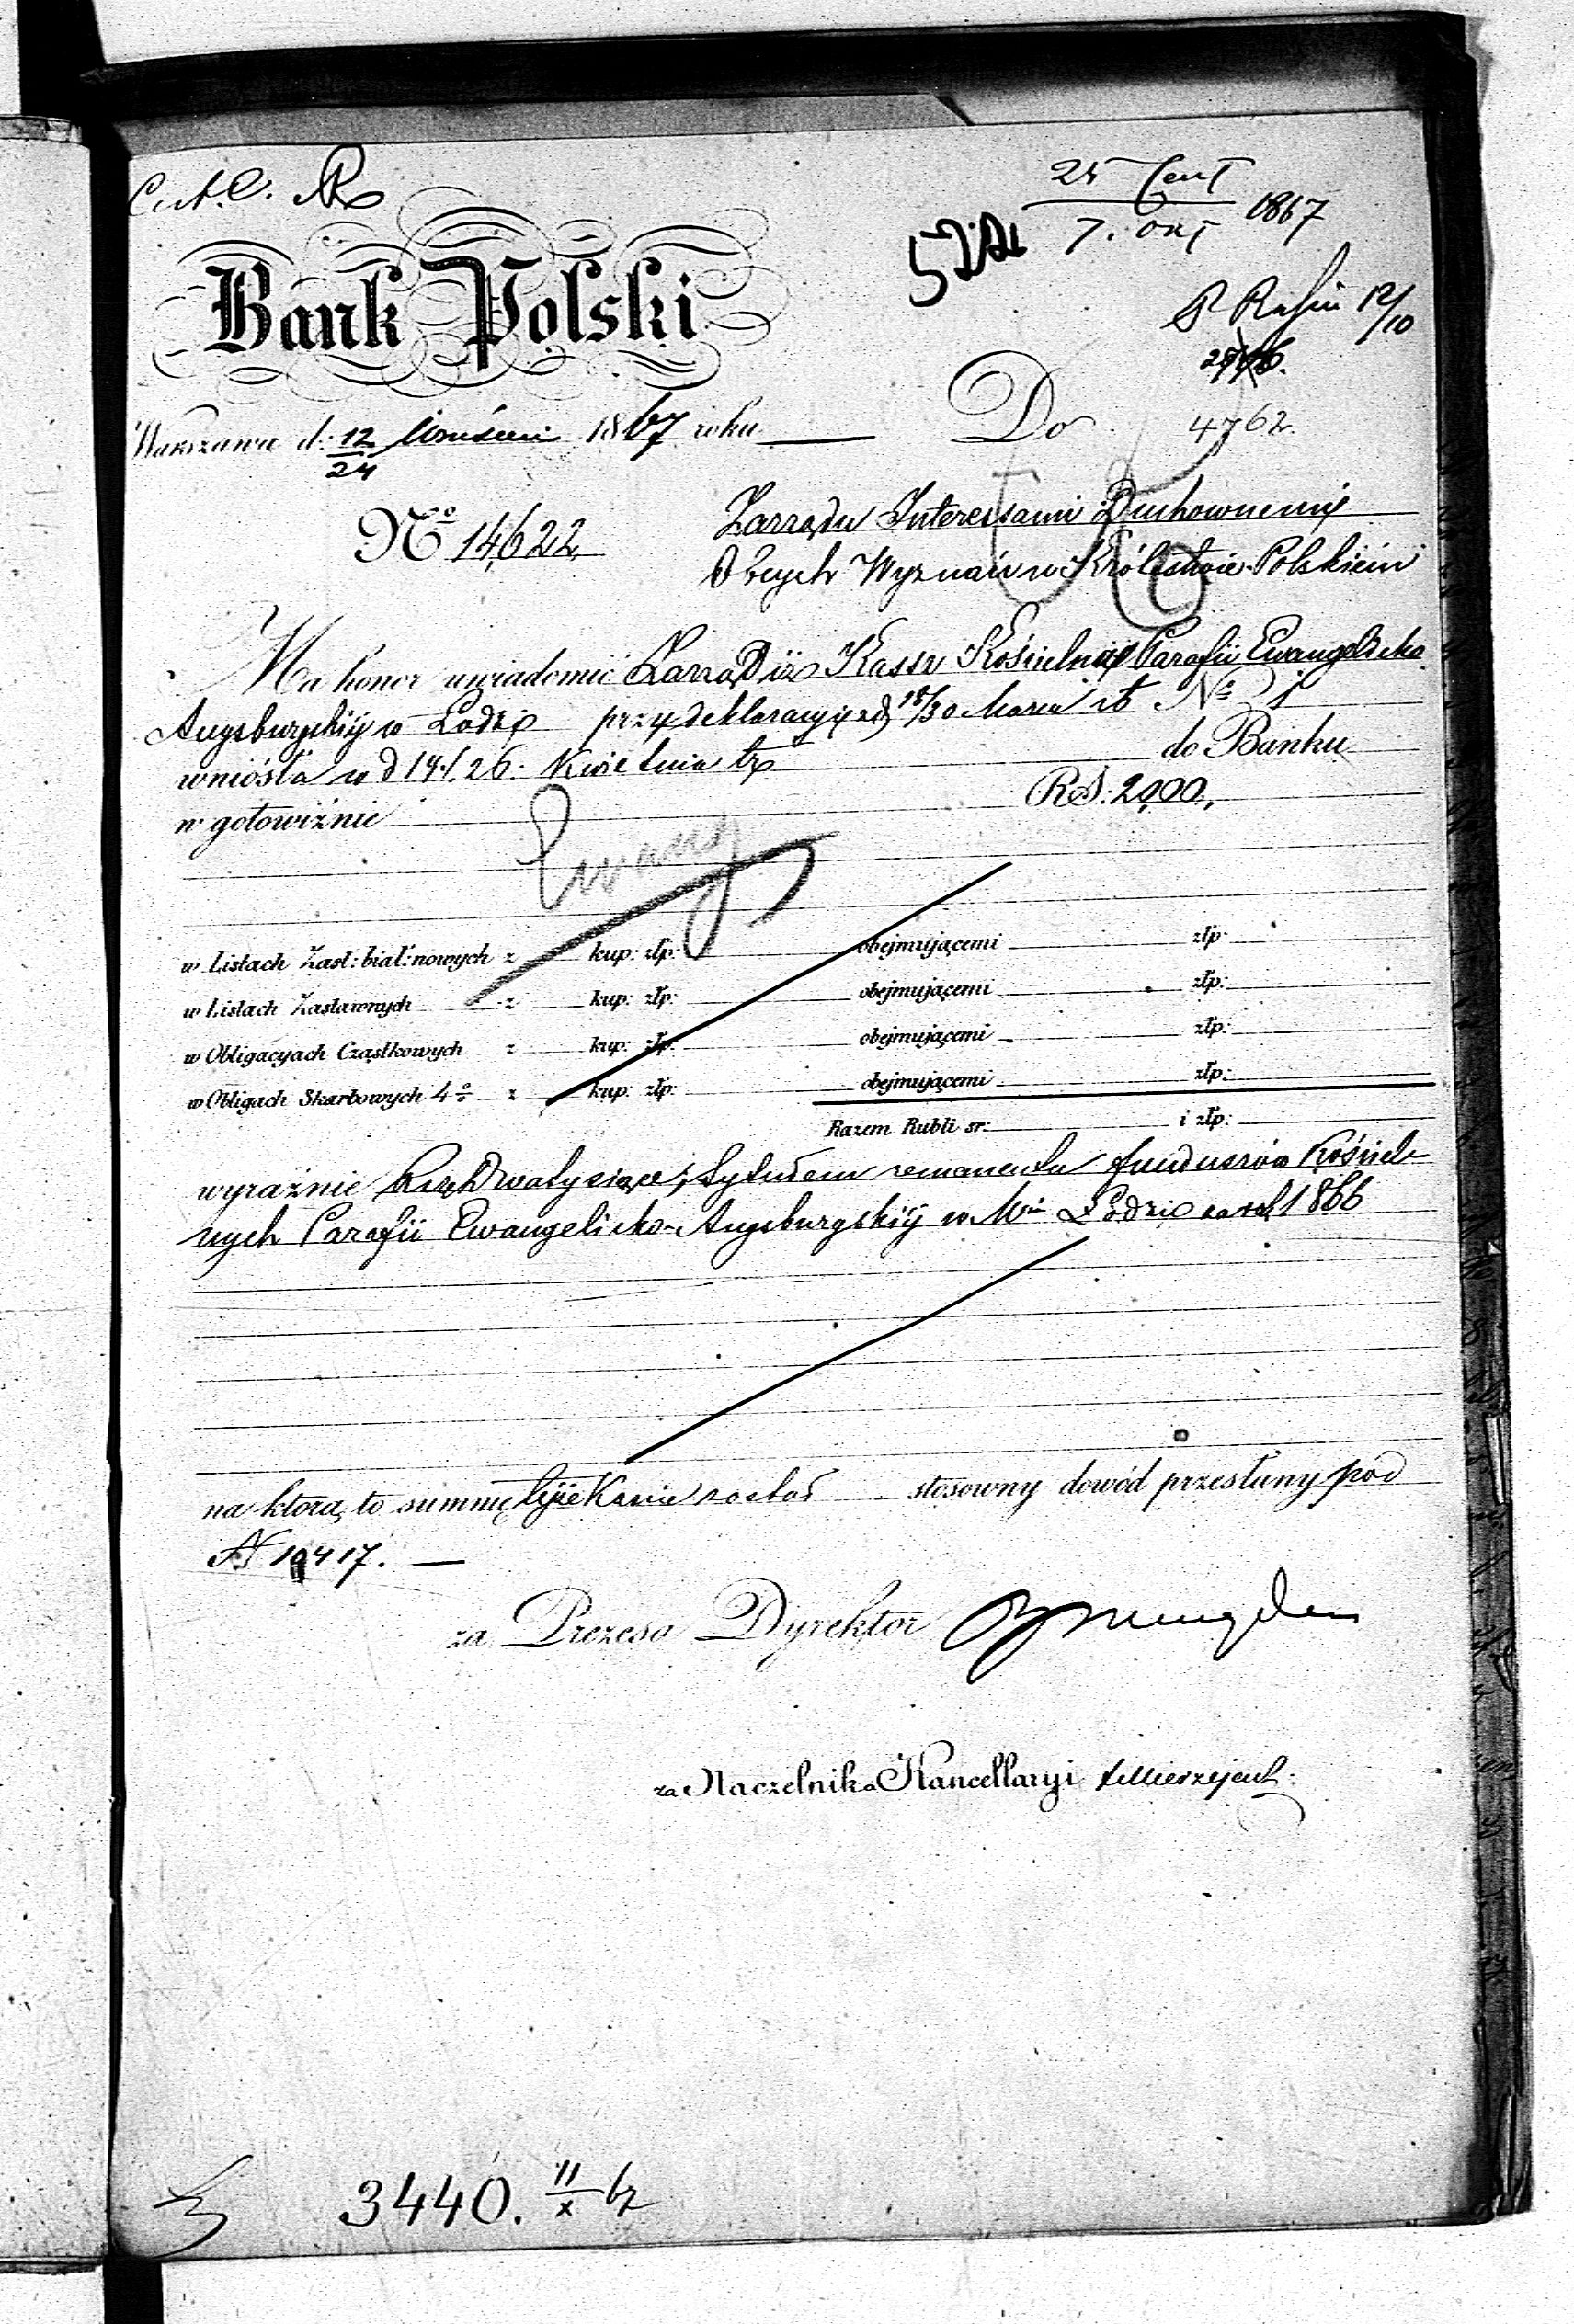 25 Сент
7. Окт 1867
Bank Polski
12/10
Warszawa d. 12/24 Września 1867 roku
Do
4762.
No 14622
Zarządu Interessami Duchownemi
Obcych Wyznań w Królestwie Polskiem
Ma honor uwiadomić Zarząd iż Kassa Kościelna Parafii Ewangelicko
Augsburgskiej w Łodzi przy deklaracyi z d. 18/30 Marca rb No 1
wniosła w d 14/26 Kwietnia tr do Banku
w gotowiźnie RS: 2000,
Ewang
w Listach Zast: biał: nowych z kup: złp: obejmującemi złp:
w Listach Zastawnych z kup: złp: obejmującemi złp:
w Obligacyach Cząstkowych z kup: złp: obejmującemi złp:
w Obligach Skarbowych 4% z kup: złp: obejmującemi złp:
Razem Rubli sr: i złp:
wyraźnie Dwa tysiące, tytułem remanentu funduszów Kościel-
nych Parafii Ewangelicko-Augsburgskiej w Mie Łodzi za rok 1866
na którą to summę tejże Kassie został stosowny dowód przesłany pod
N 10417.
za Prezesa Dyrektor
za Naczelnika Kancellaryi
3440. 11/X 67